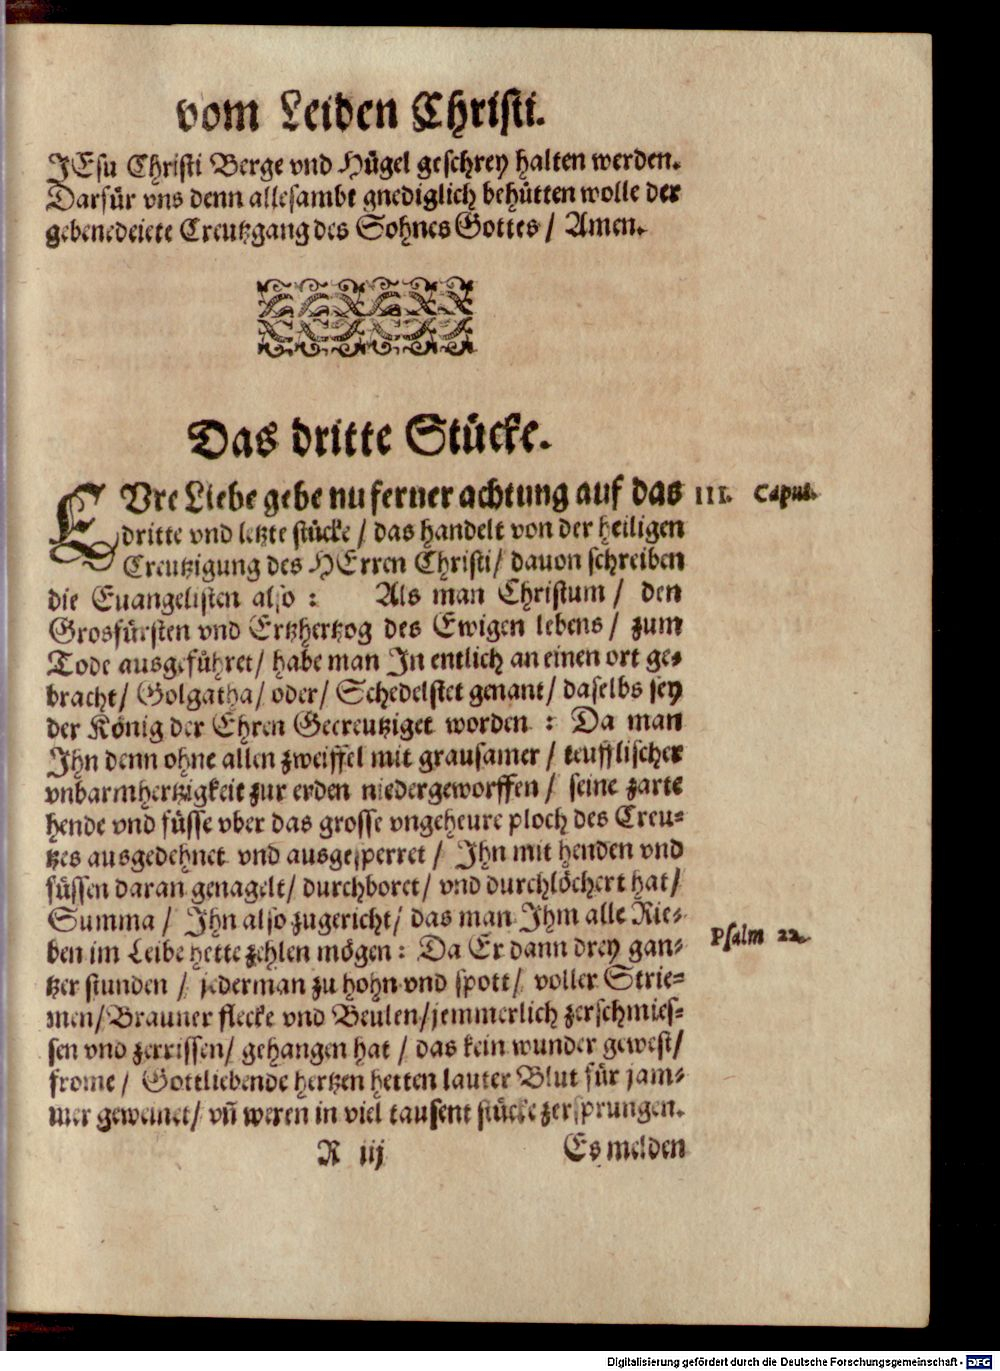 vom Leiden Christi.
JEsu Christi Berge vnd Hügel geschrey halten werden.
Darfür vns denn allesambt gnediglich behütten wolle der
gebenedeiete Creutzgang des Sohnes Gottes / Amen.
Das dritte Stücke.
EVre Liebe gebe nu ferner achtung auf das III. Caput.
dritte vnd letzte stücke / das handelt von der heiligen
Creutzigung des HErren Christi / dauon schreiben
die Euangelisten also : Als man Christum / den
Grosfürsten vnd Ertzhertzog des Ewigen lebens / zum
Tode ausgeführet / habe man In entlich an einen ort ge-
bracht / Golgatha / oder / Schedelstet genant / daselbs sey
der König der Ehren Gecreutziget worden : Da man
Ihn denn ohne allen zweiffel mit grausamer / teufflischer
vnbarmhertzigkeit zur erden niedergeworffen / seine zarte
hende vnd füsse vber das grosse vngeheure ploch des Creu-
tzes ausgedehnet vnd ausgesperret / Ihn mit henden vnd
füssen daran genagelt / durchboret / vnd durchlöchert hat /
Summa / Ihn also zugericht / das man Ihm alle Rie-
ben im Leibe hette zehlen mögen : Da Er dann drey gan- Psalm 22.
tzer stunden / jederman zu hohn vnd spott / voller Strie-
men / Brauner flecke vnd Beulen / jemmerlich zerschmies-
sen vnd zerrissen / gehangen hat / das kein wunder gewest /
frome / Gottliebende hertzen hetten lauter Blut für jam-
mer geweinet / vñ weren in viel tausent stücke zersprungen.
R iij Es melden
Digitalisierung gefördert durch die Deutsche Forschungsgemeinschaft - DFG